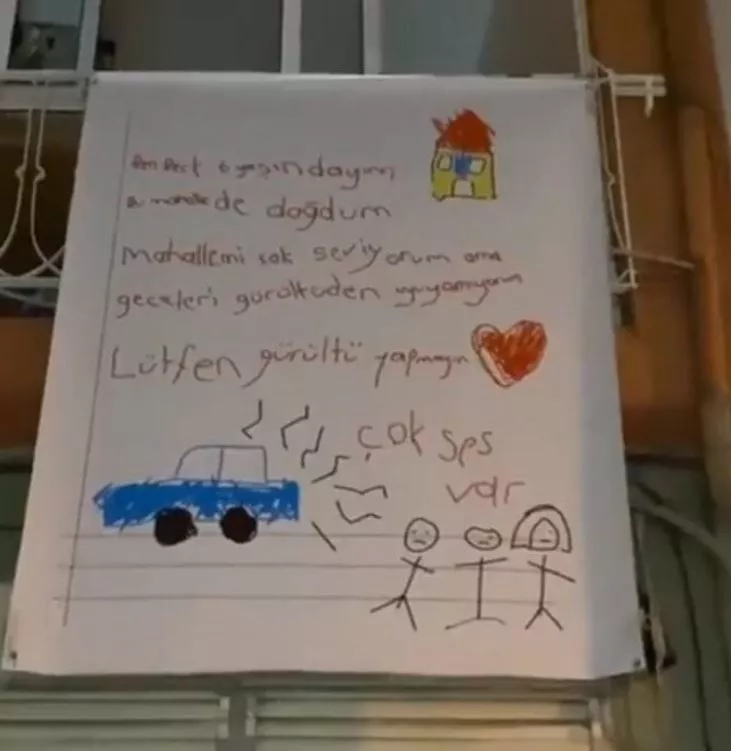 Ben Berk 6 yaşındayım
Bu mahallede doğdum
Mahallemi çok seviyorum ama
geceleri gürültüden uyuyamıyorum
Lütfen gürültü yapmayın
çok ses
var